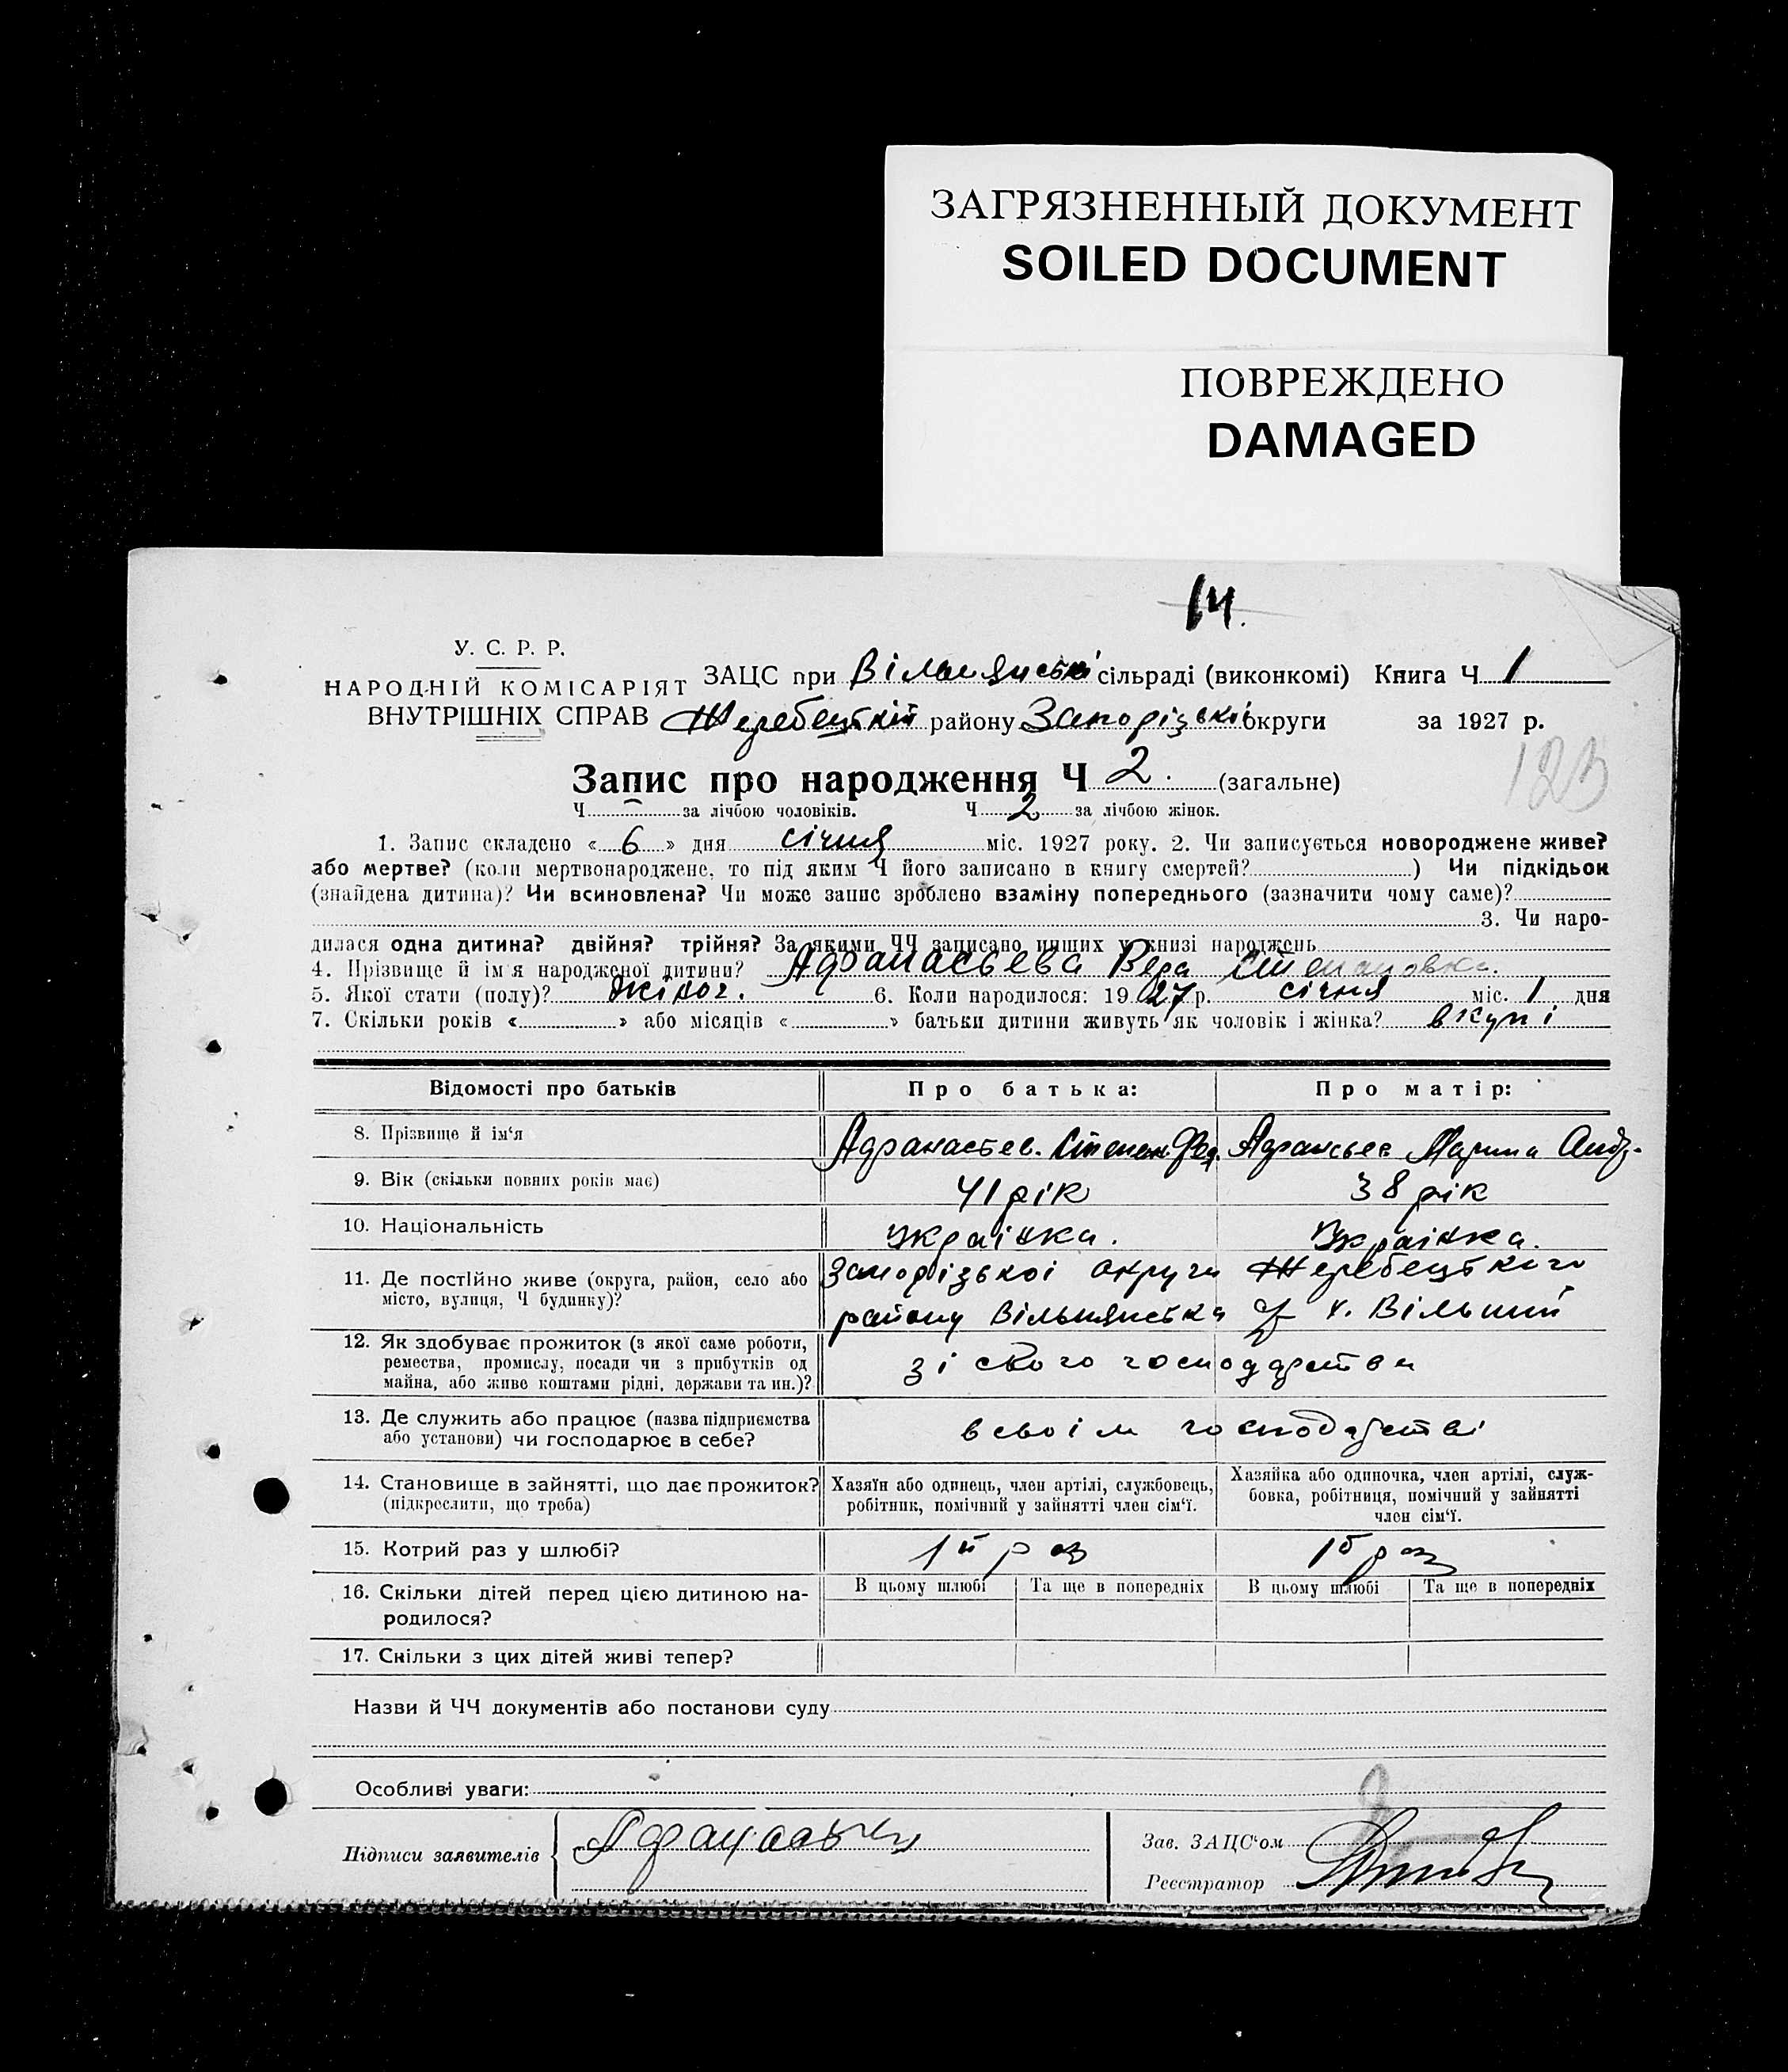 ЗАГРЯЗНЕННЫЙ ДОКУМЕНТ
SOILED DOCUMENT
ПОВРЕЖДЕНО
DAMAGED
14.
У. С. Р. Р.
НАРОДНІЙ КОМІСАРІЯТ
ВНУТРІШНІХ СПРАВ
ЗАЦС при Вільнянські сільраді (виконкомі) Книга Ч 1
Жеребецькій району Запорізької округи за 1927 р.
123
Запис про народження Ч 2. (загальне)
Ч – за лічбою чоловіків. Ч 2 за лічбою жінок.
1. Запис складено « 6 » дня січня міс. 1927 року. 2. Чи записується новороджене живе?
або мертве? (коли мертвонароджене, то під яким Ч його записано в книгу смертей? ) Чи підкідьок
(знайдена дитина)? Чи всиновлена? Чи може запис зроблено взаміну попереднього (зазначити чому саме)?
3. Чи наро-
дилася одна дитина? двійня? трійня? За якими ЧЧ записано инших у книзі народжень
4. Прізвище й ім'я народженої дитини? Афанасьева Вера Степановка.
5. Якої стати (полу)? жіноч. 6. Коли народилося: 19 27 р. січня міс. 1 дня
7. Скільки років « » або місяців « » батьки дитини живуть як чоловік і жінка? вкупі
Відомості про батьків Про батька: Про матір:
8. Прізвище й ім'я Афанасьев. Степан Фед. Афанасьев Марина Андр.
9. Вік (скільки повних років має) 41 рік 38 рік
10. Національність українка. Українка.
11. Де постійно живе (округа, район, село або Запорізької округи Жеребецького
місто, вулиця, Ч будинку)? району Вільнянська х. Вільний
12. Як здобуває прожиток (з якої саме роботи,
ремества, промислу, посади чи з прибутків од зі свого господарства
майна, або живе коштами рідні, держави та ин.)?
13. Де служить або працює (назва підприємства
або установи) чи господарює в себе? в своїм господарстві
14. Становище в зайнятті, що дає прожиток? Хазяїн або одинець, член артілі, службовець, Хазяйка або одиночка, член артілі, служ-
(підкреслити, що треба) робітник, помічний у зайнятті член сім'ї. бовка, робітниця, помічний у зайнятті
член сім'ї.
15. Котрий раз у шлюбі? 1й раз 1й раз
16. Скільки дітей перед цією дитиною на- В цьому шлюбі Та ще в попередніх В цьому шлюбі Та ще в попередніх
родилося?
17. Скільки з цих дітей живі тепер?
Назви й ЧЧ документів або постанови суду
Особливі уваги:
Підписи заявителів Зав. ЗАЦС'ом
Реєстратор